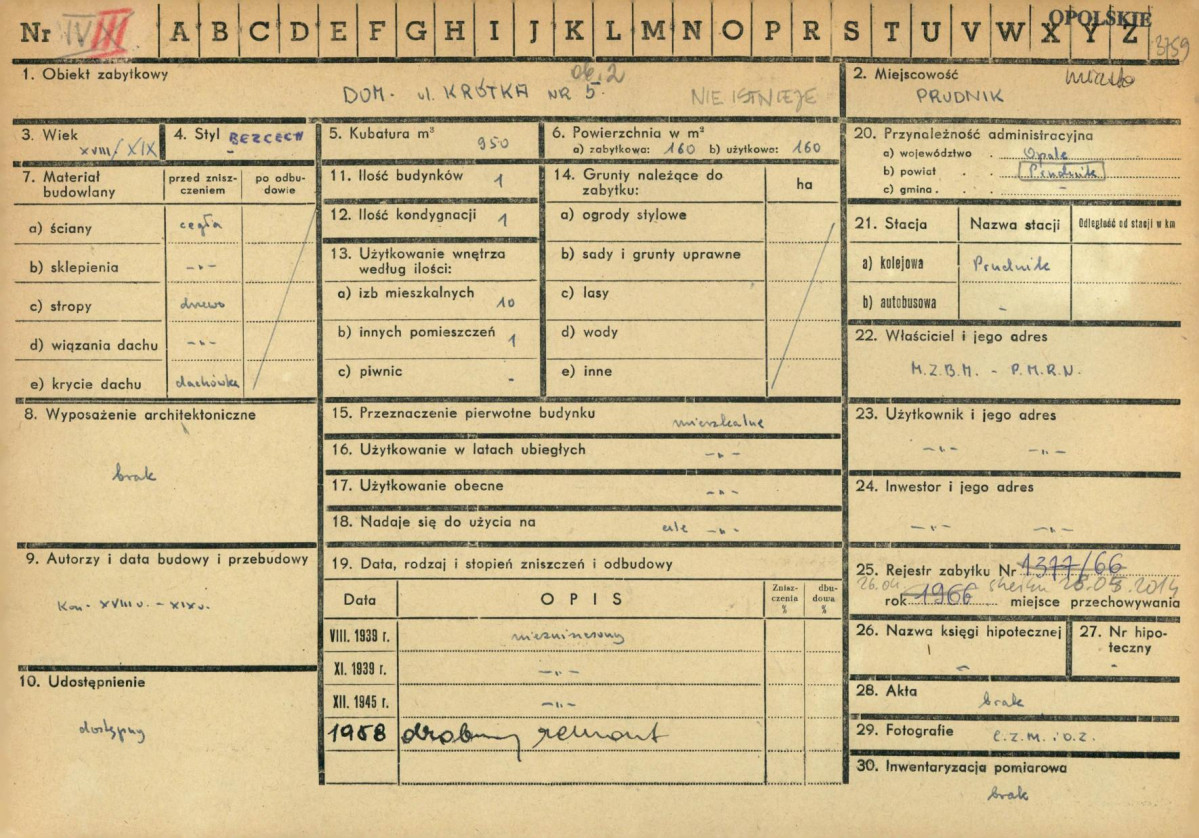 Nr IV III A B C D E F G H I J K L M N O P R S T U V W X Y Z OPOLSKIE 3759
1. Obiekt zabytkowy
ob. 2
DOM - ul. KRÓTKA NR 5. NIE ISTNIEJE
2. Miejscowość miasto
PRUDNIK
3. Wiek
XVIII/XIX
4. Styl BEZCECH
-
5. Kubatura m³
950
6. Powierzchnia w m²
a) zabytkowa: 160 b) użytkowa: 160
20. Przynależność administracyjna
a) województwo . Opole
b) powiat . . Prudnik
c) gmina . . -
7. Materiał budowlany
przed zniszczeniem
po odbudowie
a) ściany cegła
b) sklepienia -„-
c) stropy drewo
d) wiązania dachu -„-
e) krycie dachu dachówka
11. Ilość budynków 1
12. Ilość kondygnacji 1
13. Użytkowanie wnętrza
według ilości:
a) izb mieszkalnych 10
b) innych pomieszczeń 1
c) piwnic -
14. Grunty należące do
zabytku:
ha
a) ogrody stylowe
b) sady i grunty uprawne
c) lasy
d) wody
e) inne
21. Stacja
Nazwa stacji
Odległość od stacji w km
a) kolejowa Prudnik
b) autobusowa -
22. Właściciel i jego adres
M.Z.B.M. - P.M.R.N.
8. Wyposażenie architektoniczne
brak
15. Przeznaczenie pierwotne budynku mieszkalne
16. Użytkowanie w latach ubiegłych -„-
17. Użytkowanie obecne -„-
18. Nadaje się do użycia na cele -„-
23. Użytkownik i jego adres
-„- -„-
24. Inwestor i jego adres
-„- -„-
9. Autorzy i data budowy i przebudowy
Kon. XVIII w. - XIX w.
19. Data, rodzaj i stopień zniszczeń i odbudowy
Data
OPIS
Zniszczenia %
dbudowa %
VIII. 1939 r. niezniszczony
XI. 1939 r. -„-
XII. 1945 r. -„-
1958 drobny remont
25. Rejestr zabytku Nr 1377/66
26.04 rok 1966 miejsce przechowywania
26. Nazwa księgi hipotecznej
-
27. Nr hipoteczny
-
10. Udostępnienie
dostępny
28. Akta
brak
29. Fotografie
C.Z.M. i O.Z.
30. Inwentaryzacja pomiarowa
brak